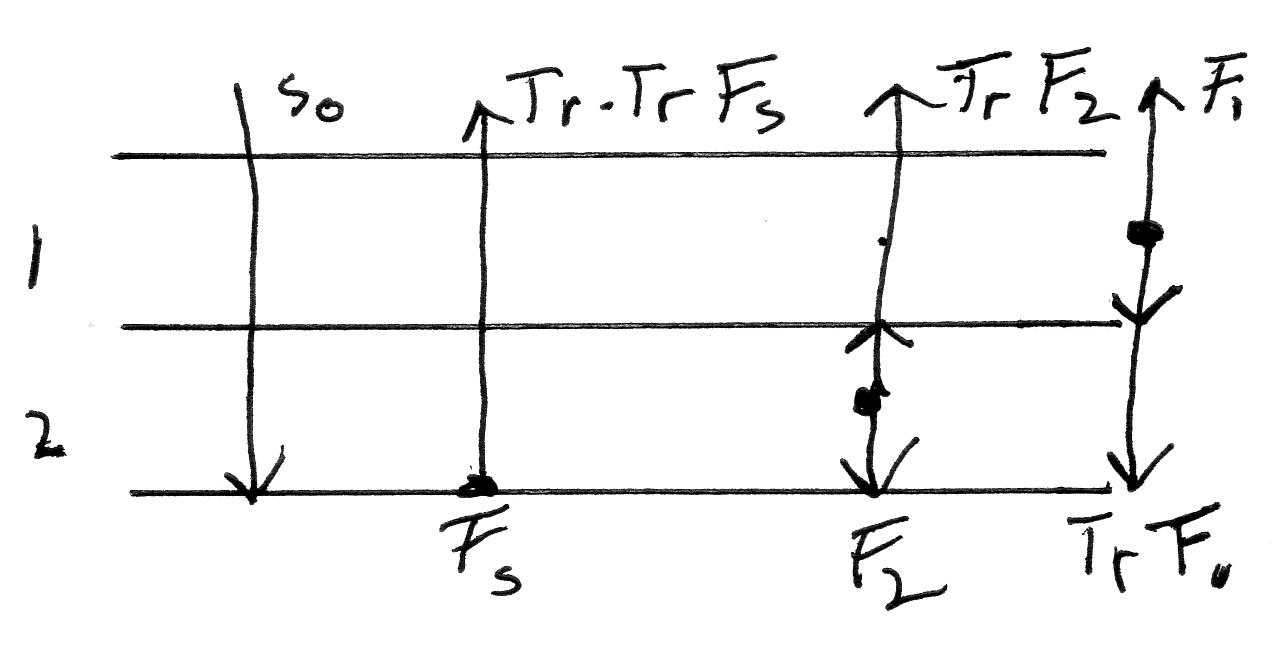 So Tr·Tr Fs Tr F2 F1
1
2
Fs F2 Tr F1